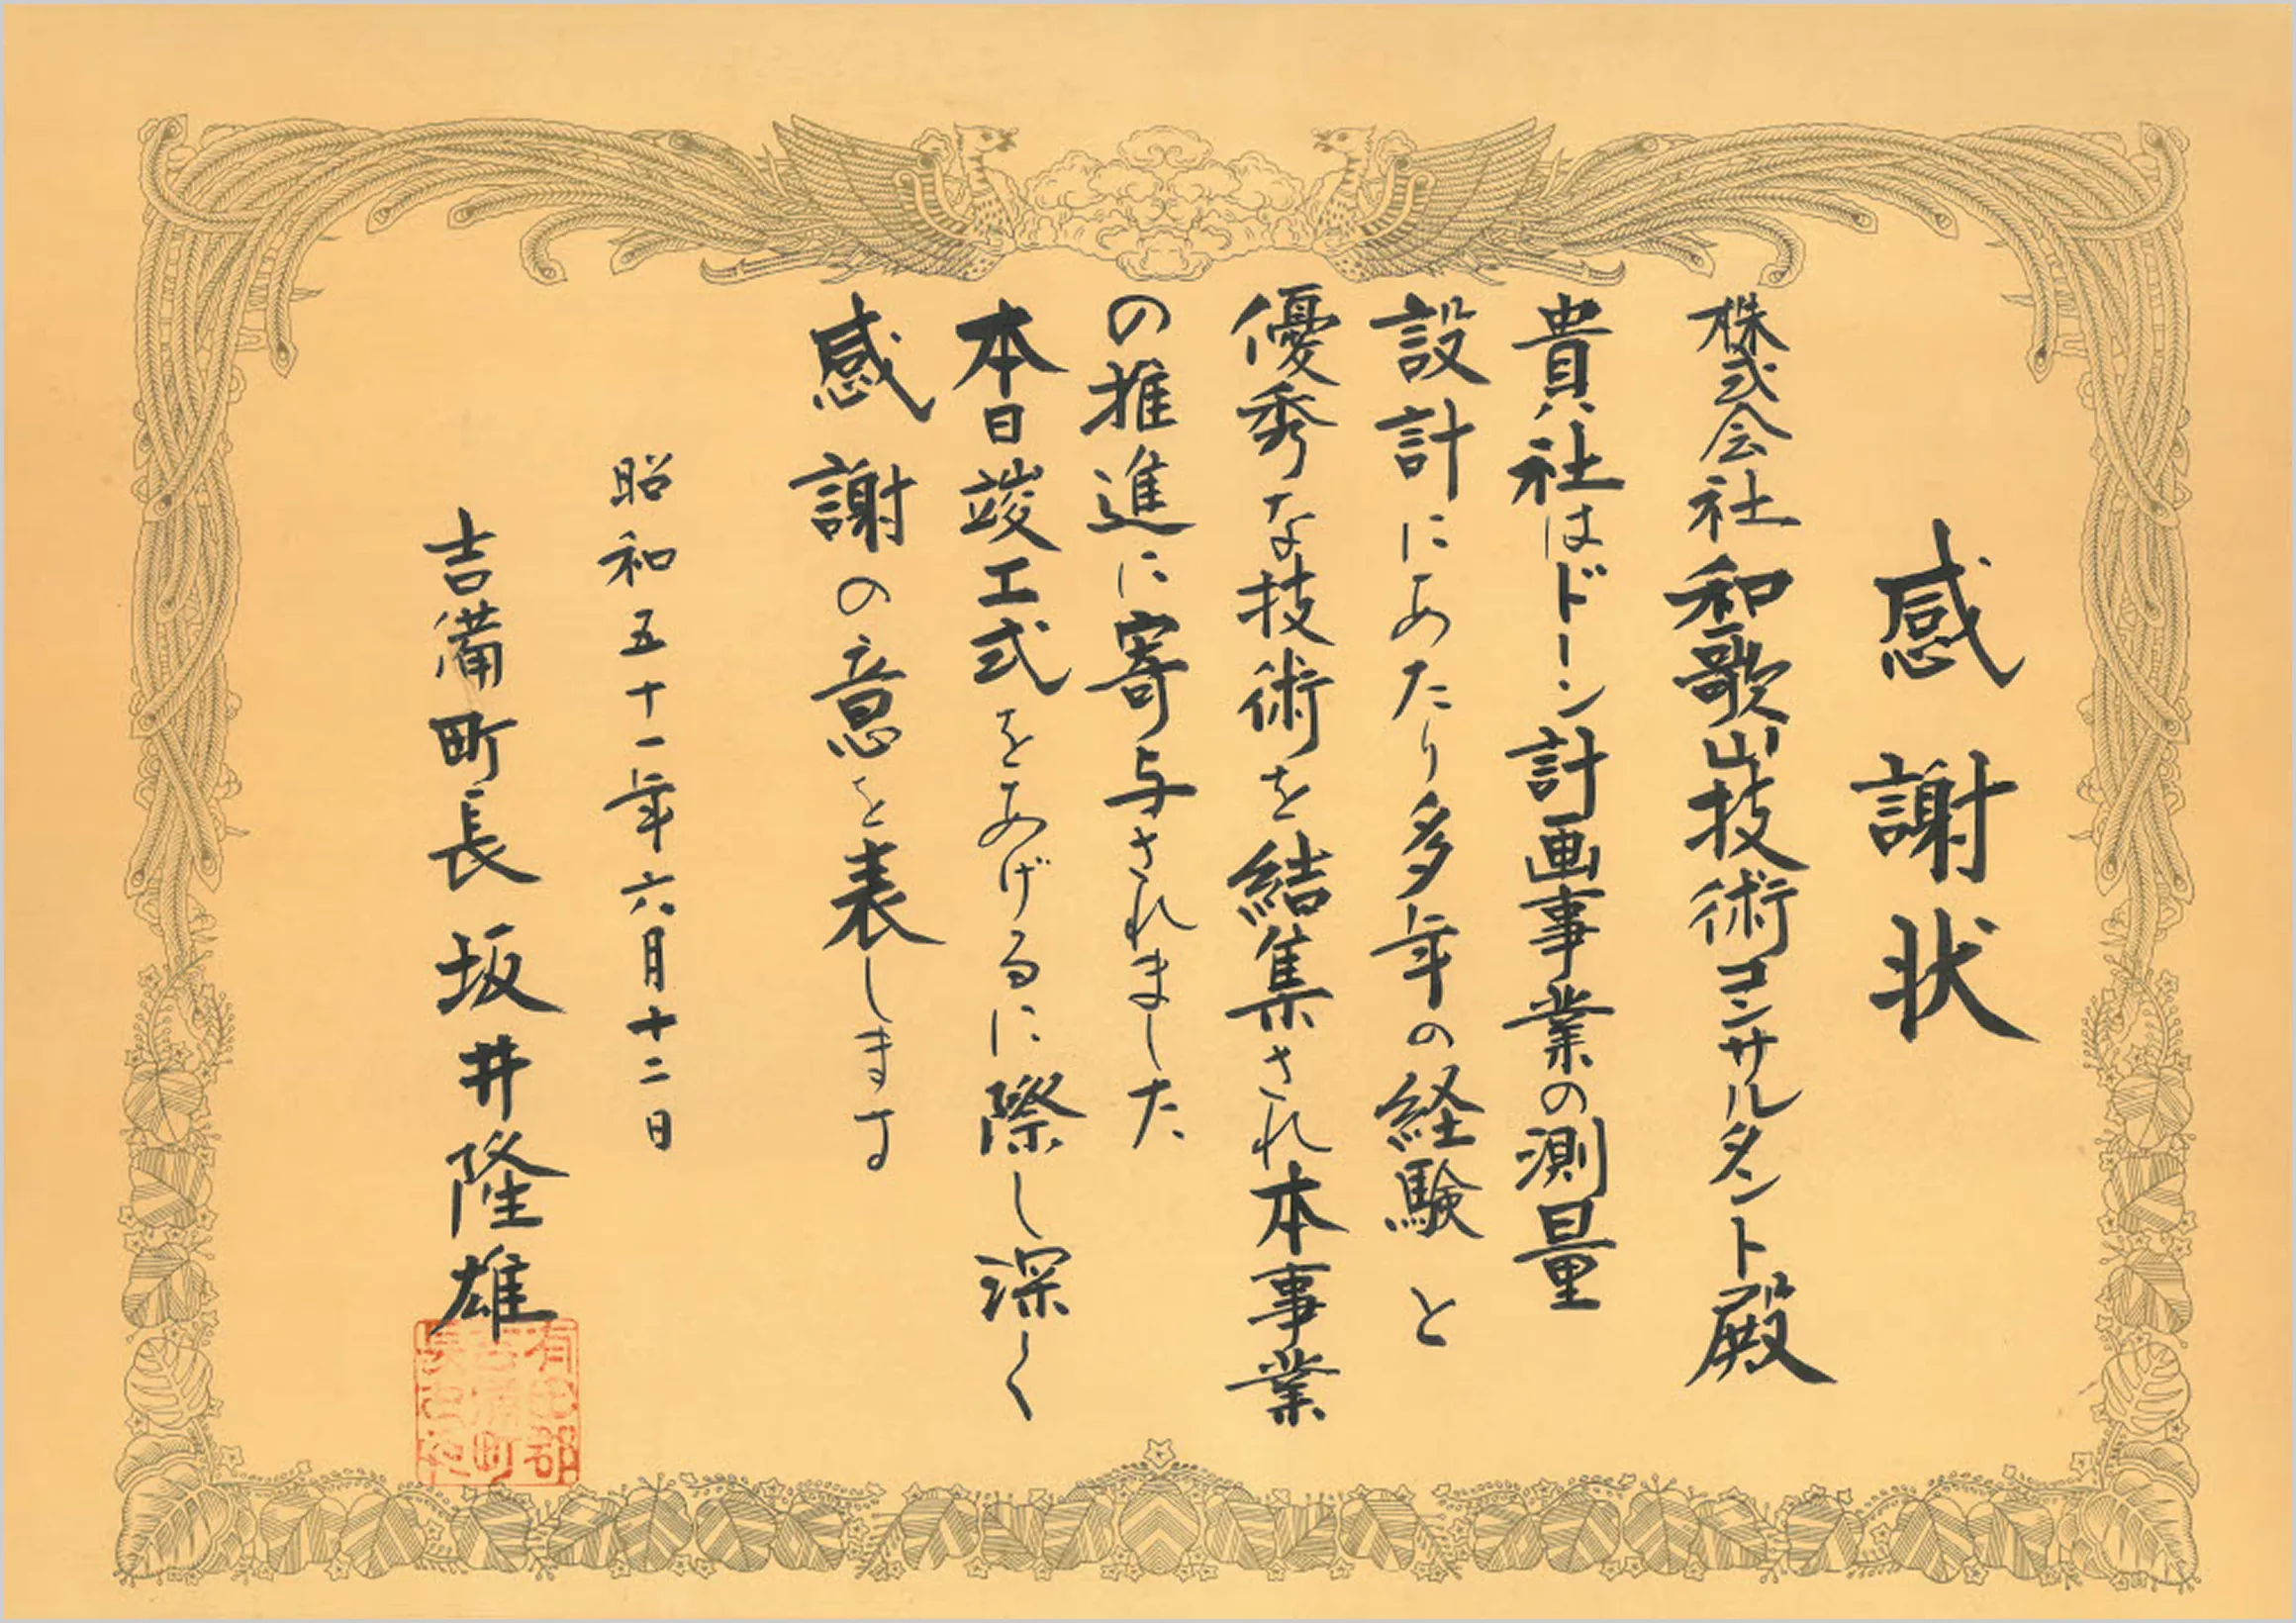 感謝状
株式会社和歌山技術コンサルタント殿
貴社はドーン計画事業の測量
設計にあたり多年の経験と
優秀な技術を結集され本事業
の推進に寄与されました
本日竣工式をあげるに際し深く
感謝の意を表します
昭和五十一年六月十二日
吉備町長坂井隆雄
有田郡
吉備町
長之印